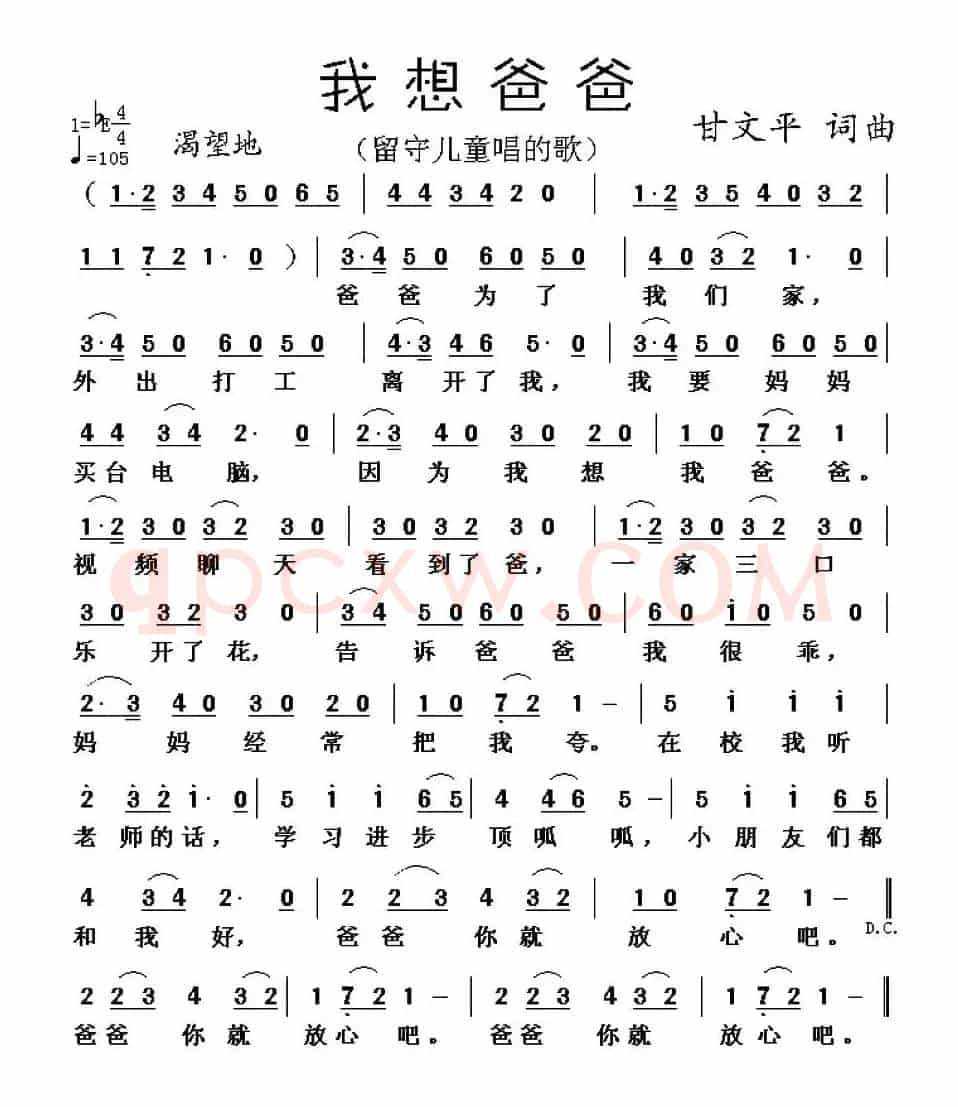 我想爸爸
1=♭E 4/4
♩=105 渴望地 （留守儿童唱的歌） 甘文平 词曲
( 1·2 3 4 5 0 6 5 | 4 4 3 4 2 0 | 1·2 3 5 4 0 3 2 |
1 1 7̣ 2 1· 0 ) | 3·4 5 0 6 0 5 0 | 4 0 3 2 1· 0 |
爸爸为了我们家，
3·4 5 0 6 0 5 0 | 4·3 4 6 5· 0 | 3·4 5 0 6 0 5 0 |
外出打工离开了我，我要妈妈
4 4 3 4 2· 0 | 2·3 4 0 3 0 2 0 | 1 0 7̣ 2 1
买台电脑，因为我想我爸爸。
1·2 3 0 3 2 3 0 | 3 0 3 2 3 0 | 1·2 3 0 3 2 3 0
视频聊天看到了爸，一家三口
3 0 3 2 3 0 | 3 4 5 0 6 0 5 0 | 6 0 i 0 5 0 |
乐开了花，告诉爸爸我很乖，
2·3 4 0 3 0 2 0 | 1 0 7̣ 2 1 – | 5 i i i |
妈妈经常把我夸。在校我听
2̇ 3̇ 2̇ i· 0 | 5 i i 6 5 | 4 4 6 5 – | 5 i i 6 5 |
老师的话，学习进步顶呱呱，小朋友们都
4 3 4 2· 0 | 2 2 3 4 3 2 | 1 0 7̣ 2 1 – ‖
和我好，爸爸你就放心吧。D.C.
2 2 3 4 3 2 | 1 7̣ 2 1 – | 2 2 3 4 3 2 | 1 7̣ 2 1 – ‖
爸爸你就放心吧。爸爸你就放心吧。
qpcxw.COM